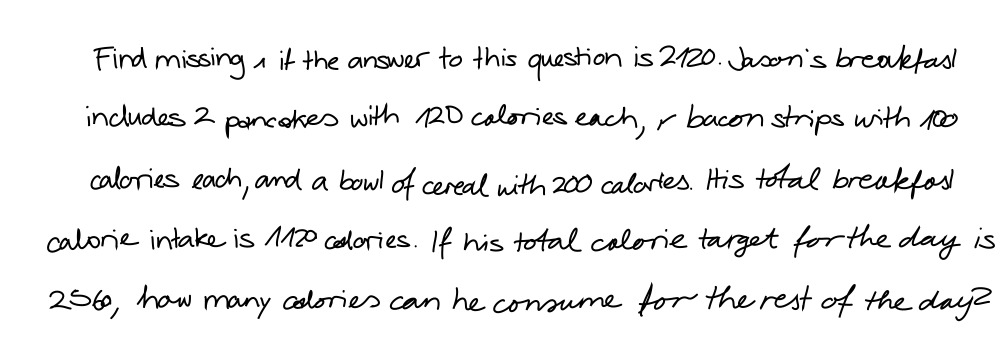 Find missing r if the answer to this question is 2120. Jason's breakfast
includes 2 pancakes with 120 calories each, r bacon strips with 100
calories each, and a bowl of cereal with 200 calories. His total breakfast
calorie intake is 1120 calories. If his total calorie target for the day is
2560, how many calories can he consume for the rest of the day?